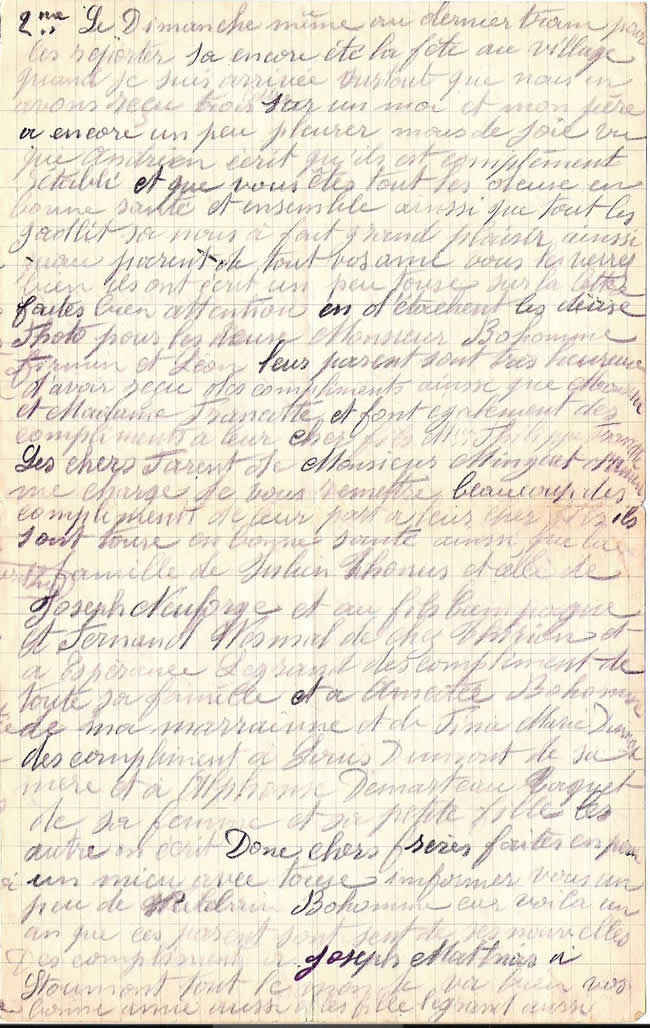 2me Le Dimanche même au dernier tram pour
les reporter sa encore été la fête au village
quand je suis arrivée surtout que nous en
avons reçu trois sur un moi et mon père
a encore un peu pleurer mais de joie vu
que Andrien écrit qu'ils est complêment
rétabli et que vous êtes tout les deuse en
bonne santé et ensemble ainssi que tout les
sa nous a fait grand plaisir ainssi
parent de tout vos ami vous les verrez
bien ils ont écrit un peu touse sur la lettre
faites bien attention en d'étachent les deuse
Photo pour les deuse Monsieur Bohomme
Firmin et Léon leur parent sont très heureux
d'avoir reçu des compliments ainsie que Monsieur
et Madame Francotte et font également des
compliments a leur cher fils
Les chers Parent de Monsieur Minguet
me charge de vous remettre beaucoup des
compliment de leur part a leur cher fils ils
sont touse en bonne santé ainsie que la
famille de Julien Thonus et celle de
Joseph Neuforge et au fils Campagne
et Fernand Wesmal de chez et
a Espérance Legrand des compliment de
toute sa famille et a Amatée Bohomme
de ma marrainne et de Tina Marie
des compliment à Louis Dumont de sa
mère et à Alphonse Demarteau
de sa femme et sa petite fille les
autre on écrit Donc chers frères faites en peu
un mieu avec touse informer vous un
peu de Bohomme car voilà un
an que ces parent sont sent de ses nouvelles
Des compliment a Joseph Mathias a
Stoumont tout le monde va bien vos
bonne amie aussi les fille legrand aussi